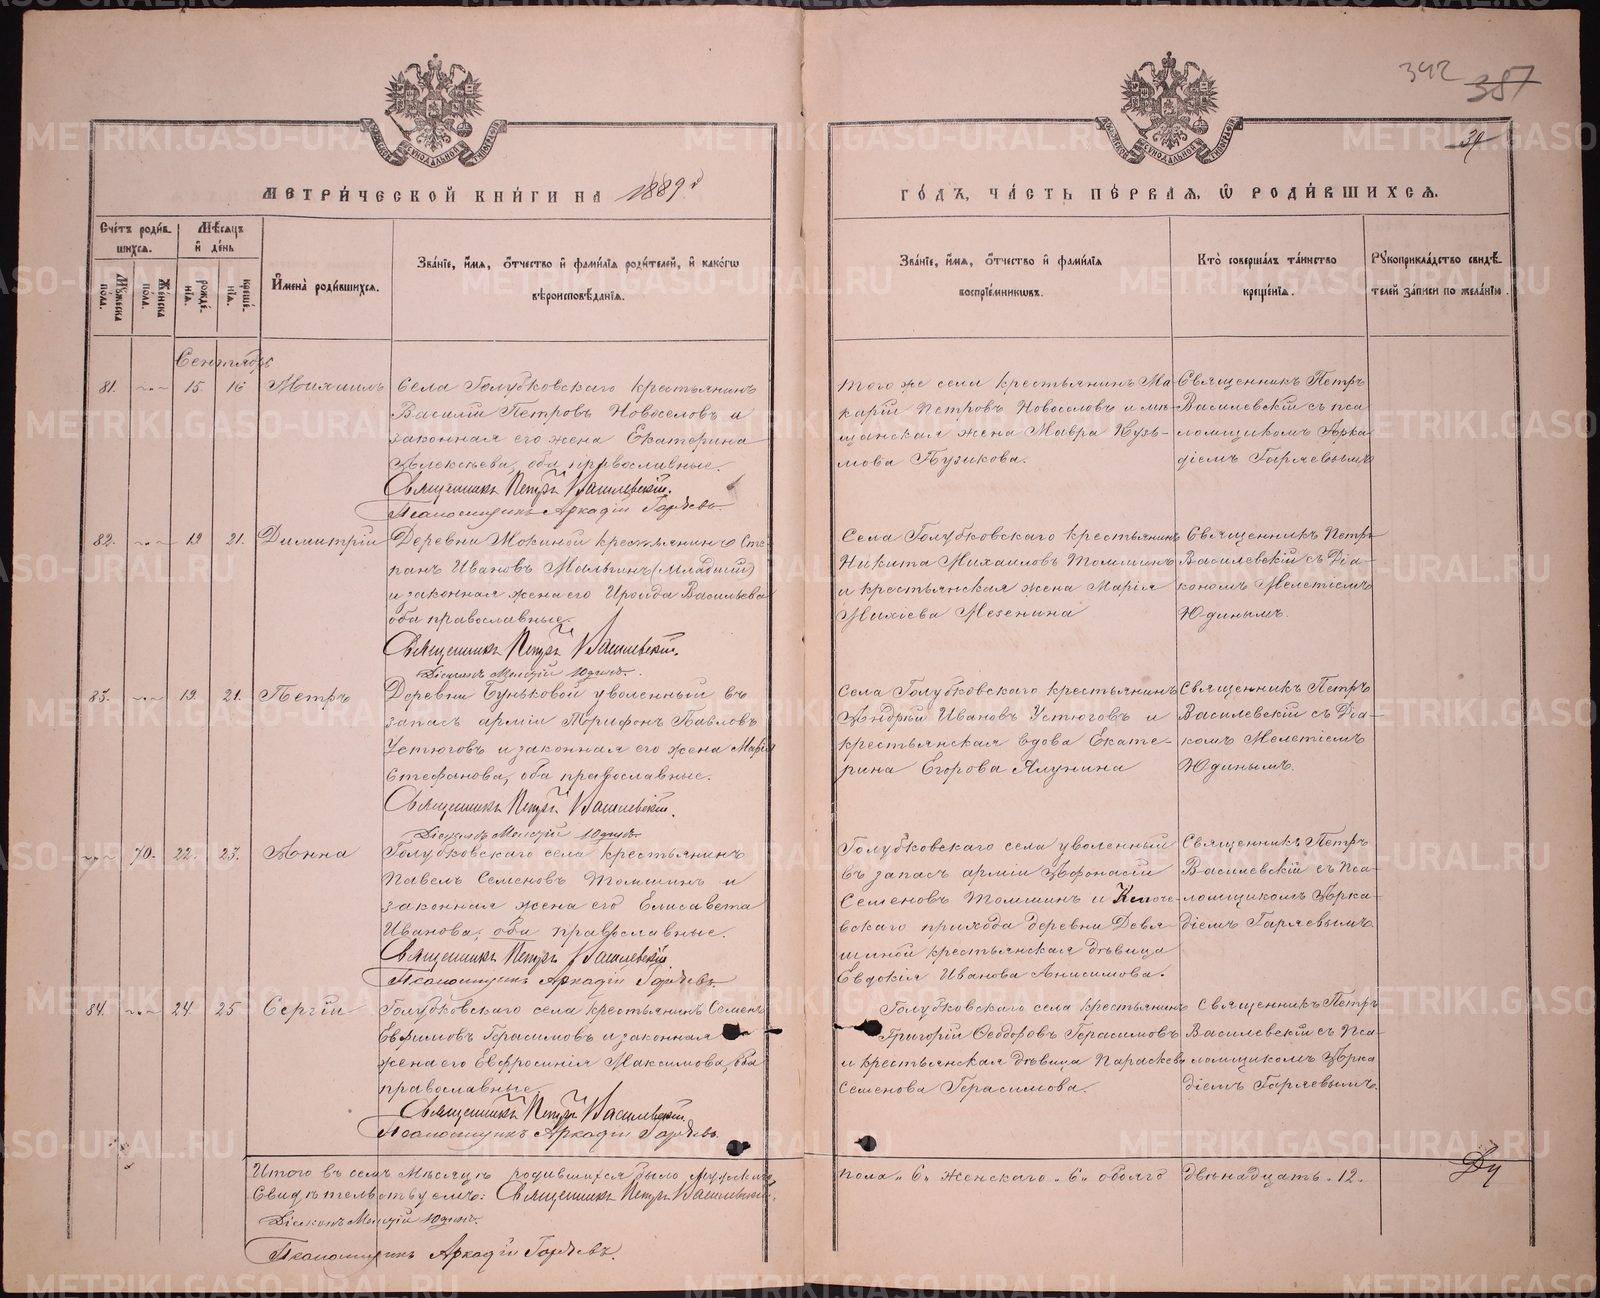 342 387
39
МЕТРИ́ЧЕСКОЙ КНИ́ГИ НА 1889 г
ГО́ДЪ, ЧА́СТЬ ПЕ́РВАЯ, Ѡ РОДИ́ВШИХСЯ.
Сче́тъ роди́в
шихся.
Мѣ́сяцъ
и҆ де́нь
Му́жеска
пола.
Же́нска
пола.
рожде́
нїя.
креще́
нїя.
И҆мена̀ роди́вшихся.
Зва́нїе, и҆́мя, ѻ҆́тчество и҆ фами́лїя роди́телей, и҆ како́гѡ
вѣроисповѣ́данїя.
Зва́нїе, и҆́мя, ѻ҆́тчество и҆ фами́лїя
воспрїе́мникѡвъ.
Кто̀ соверша́лъ та́инство
креще́нїя.
Рꙋкоприкла́дство свидѣ́
телей за́писи по жела́нїю.
Сентябрь
81. 15. 16 Михаилъ
Села Голубковскаго крестьянинъ
Василій Петровъ Новоселовъ и
законная его жена Екатерина
Алексѣева, оба православные.
Священникъ Петръ Василевскій.
Псаломщикъ Аркадій Гаряевъ.
того же села крестьянинъ Ма
карій Петровъ Новоселовъ и мѣ-
щанская жена Мавра Кузь-
мова Пузикова.
Священникъ Петръ
Василевскій съ пса
ломщикомъ Арка
діемъ Гаряевымъ
82. 19 21. Димитрій
Деревни Мокиной крестьянинъ Сте-
фанъ Ивановъ Мальгинъ (младшій)
и законная жена его Ироида Васильева
оба православные.
Священникъ Петръ Василевскій.
Діаконъ Мелетій Юдинъ.
Села Голубковскаго крестьянинъ
Никита Михаиловъ Томшинъ
и крестьянская жена Марія
Михіева Мезенина
Священникъ Петръ
Василевскій съ Діа-
кономъ Мелетіемъ
Юдинымъ.
83. 19. 21. Петръ
Деревни Буньковой уволенный въ
запасъ арміи Трифонъ Павловъ
Устюговъ и законная его жена Марія
Стефанова, оба православные.
Священникъ Петръ Василевскій.
Діаконъ Мелетій Юдинъ.
Села Голубковскаго крестьянинъ
Андрей Ивановъ Устюговъ и
крестьянская вдова Екате-
рина Егорова Ялунина
Священникъ Петръ
Василевскій съ Діа-
комъ Мелетіемъ
Юдинымъ.
70. 22. 23. Анна
Голубковскаго села крестьянинъ
Павелъ Семеновъ Томшинъ и
законная жена его Елисавета
Иванова, оба православные.
Священникъ Петръ Василевскій
Псаломщикъ Аркадій Гаряевъ.
Голубковскаго села уволенный
въ запасъ арміи Афонасій
Семеновъ Томшинъ и Ключе-
вскаго прихода деревни Девя-
шиной крестьянская дѣвица
Евдокія Иванова Анисимова.
Священникъ Петръ
Василевскій съ Пса-
ломщикомъ Арка-
діемъ Гаряевымъ.
84. 24. 25 Сергій
Голубковскаго села крестьянинъ Семенъ
Евфимовъ Герасимовъ и законная
жена его Евфросинія Максимова, оба
православные.
Священникъ Петръ Василевскій.
Псаломщикъ Аркадій Гаряевъ.
Голубковскаго села крестьянинъ
Григорій Ѳеодоровъ Герасимовъ
и крестьянская дѣвица Параскева
Семенова Герасимова.
Священникъ Петръ
Василевскій съ Пса-
ломщикомъ Арка
діемъ Гаряевымъ.
Итого въ семъ Мѣсяцѣ родившихся было мужескаго
пола „6„ женскаго „6„ обоего двѣнадцать „12.
Свидѣтельствуемъ: Священникъ Петръ Василевскій.
Діаконъ Мелетій Юдинъ.
Псаломщикъ Аркадій Гаряевъ.